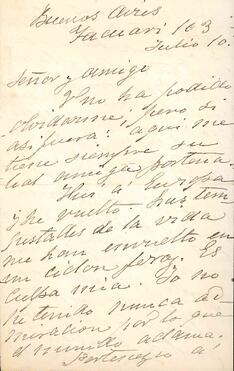 Buenos Aires
Tacuari 103
Julio 10.
Señor y amigo
V. no ha podido
olvidarme, pero si
asi fuera: aqui me
tiene siempre su
leal amiga porteña.
Fui á Europa
y he vuelto. Las tem
pestades de la vida
me han envuelto en
un ciclon feroz. Es
culpa mia. Yo no
he tenido nunca ad-
miracion por lo que
el mundo aclama.
á